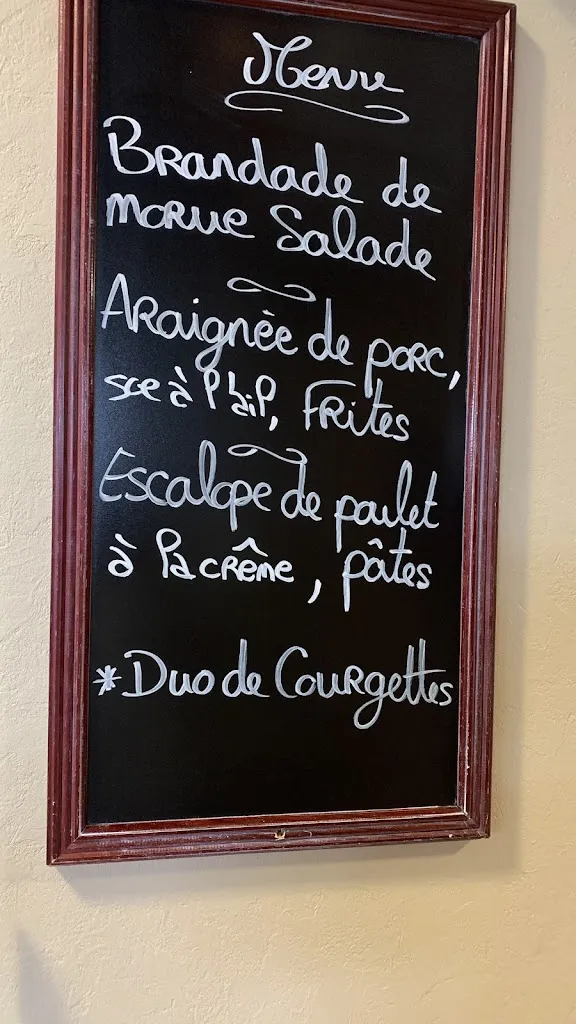 Menu
Brandade de
morue Salade
Araignée de porc,
sce à l'ail, Frites
Escalope de poulet
à la crême, pâtes
*Duo de Courgettes